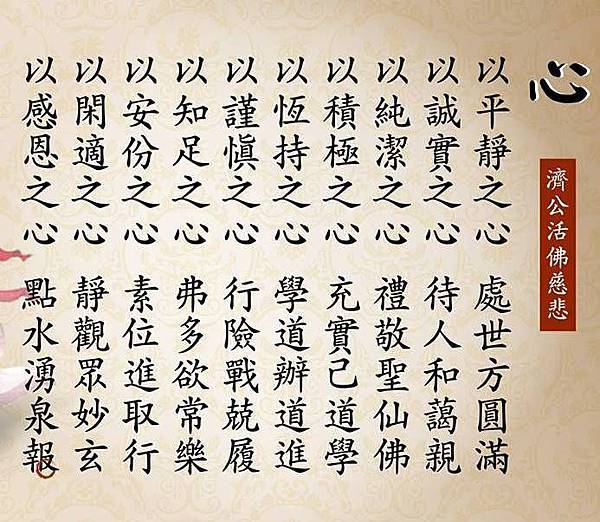 心
濟公活佛慈悲
以平靜之心 處世方圓滿
以誠實之心 待人和藹親
以純潔之心 禮敬聖仙佛
以積極之心 充實己道學
以恆持之心 學道辦道進
以謹慎之心 行險戰兢履
以知足之心 弗多欲常樂
以安份之心 素位進取行
以閑適之心 靜觀眾妙玄
以感恩之心 點水湧泉報